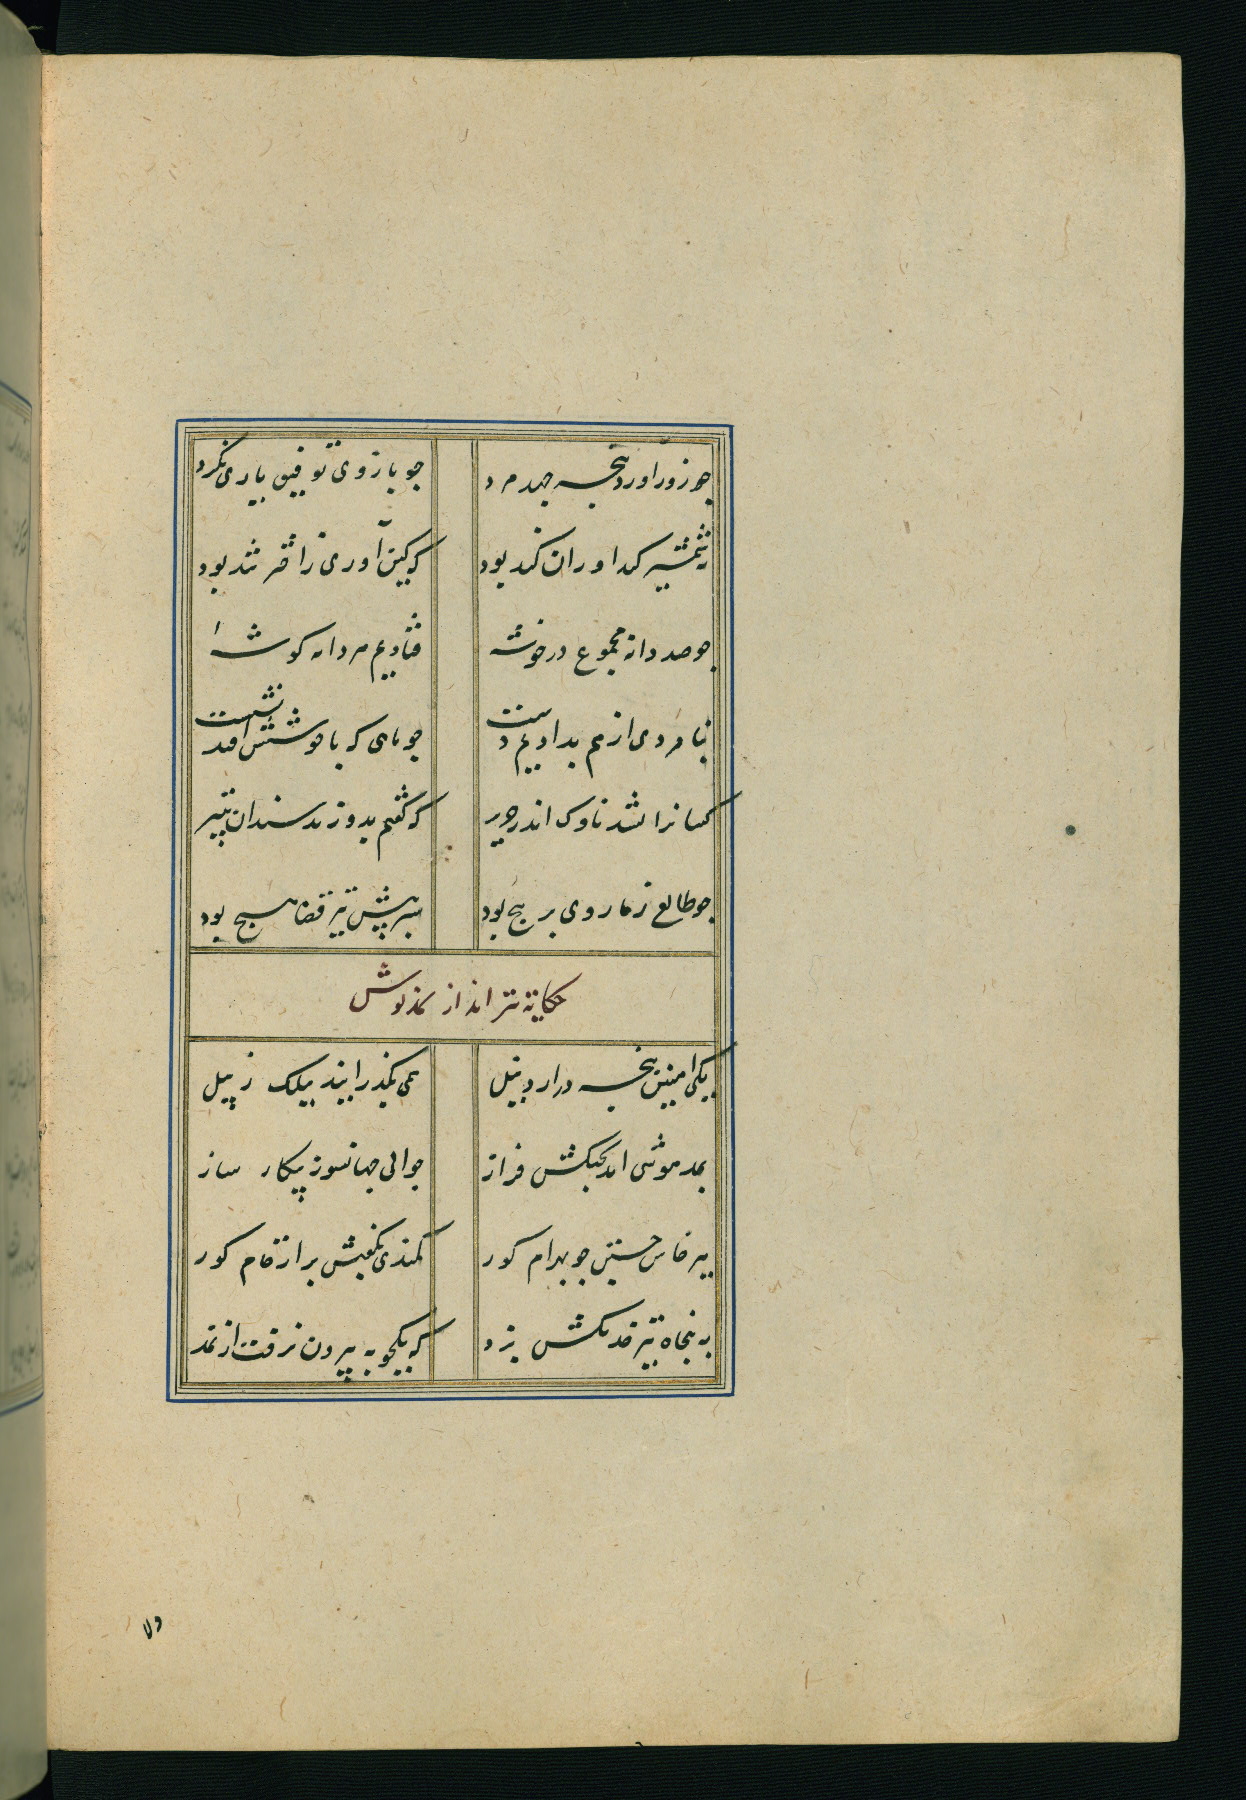 چو زورآور پنجه جهد مرد
چو بازوی توفیق یاری نکرد
نه شمشیر کنداوران کند بود
که کین آوری زاختر تند بود
چو صد دانه مجموع در خوشه
فتادیم هر دانه کوشه
بنامردی از هم بدادیم دست
چو ماهی که با جوشن افتد بشست
کسانرا نشد ناوک اندر حریر
که گفتم بدوزند سندان بتیر
چو طالع زما روی بر پیچ بود
سپر پیش تیر قضا هیچ بود
حکایة تیر انداز نمدپوش
یکی آهنین پنجه در اردبیل
همی بگذرانید بیلک ز پیل
نمدپوشی آمد بجنگش فراز
جوانی جهانسوز پیکار ساز
بپرخاش جستن چو بهرام کور
کمندی بکتفش بر از خام کور
به پنجاه تیر خدنگش بزد
که یکچوبه بیرون نرفت از نمد